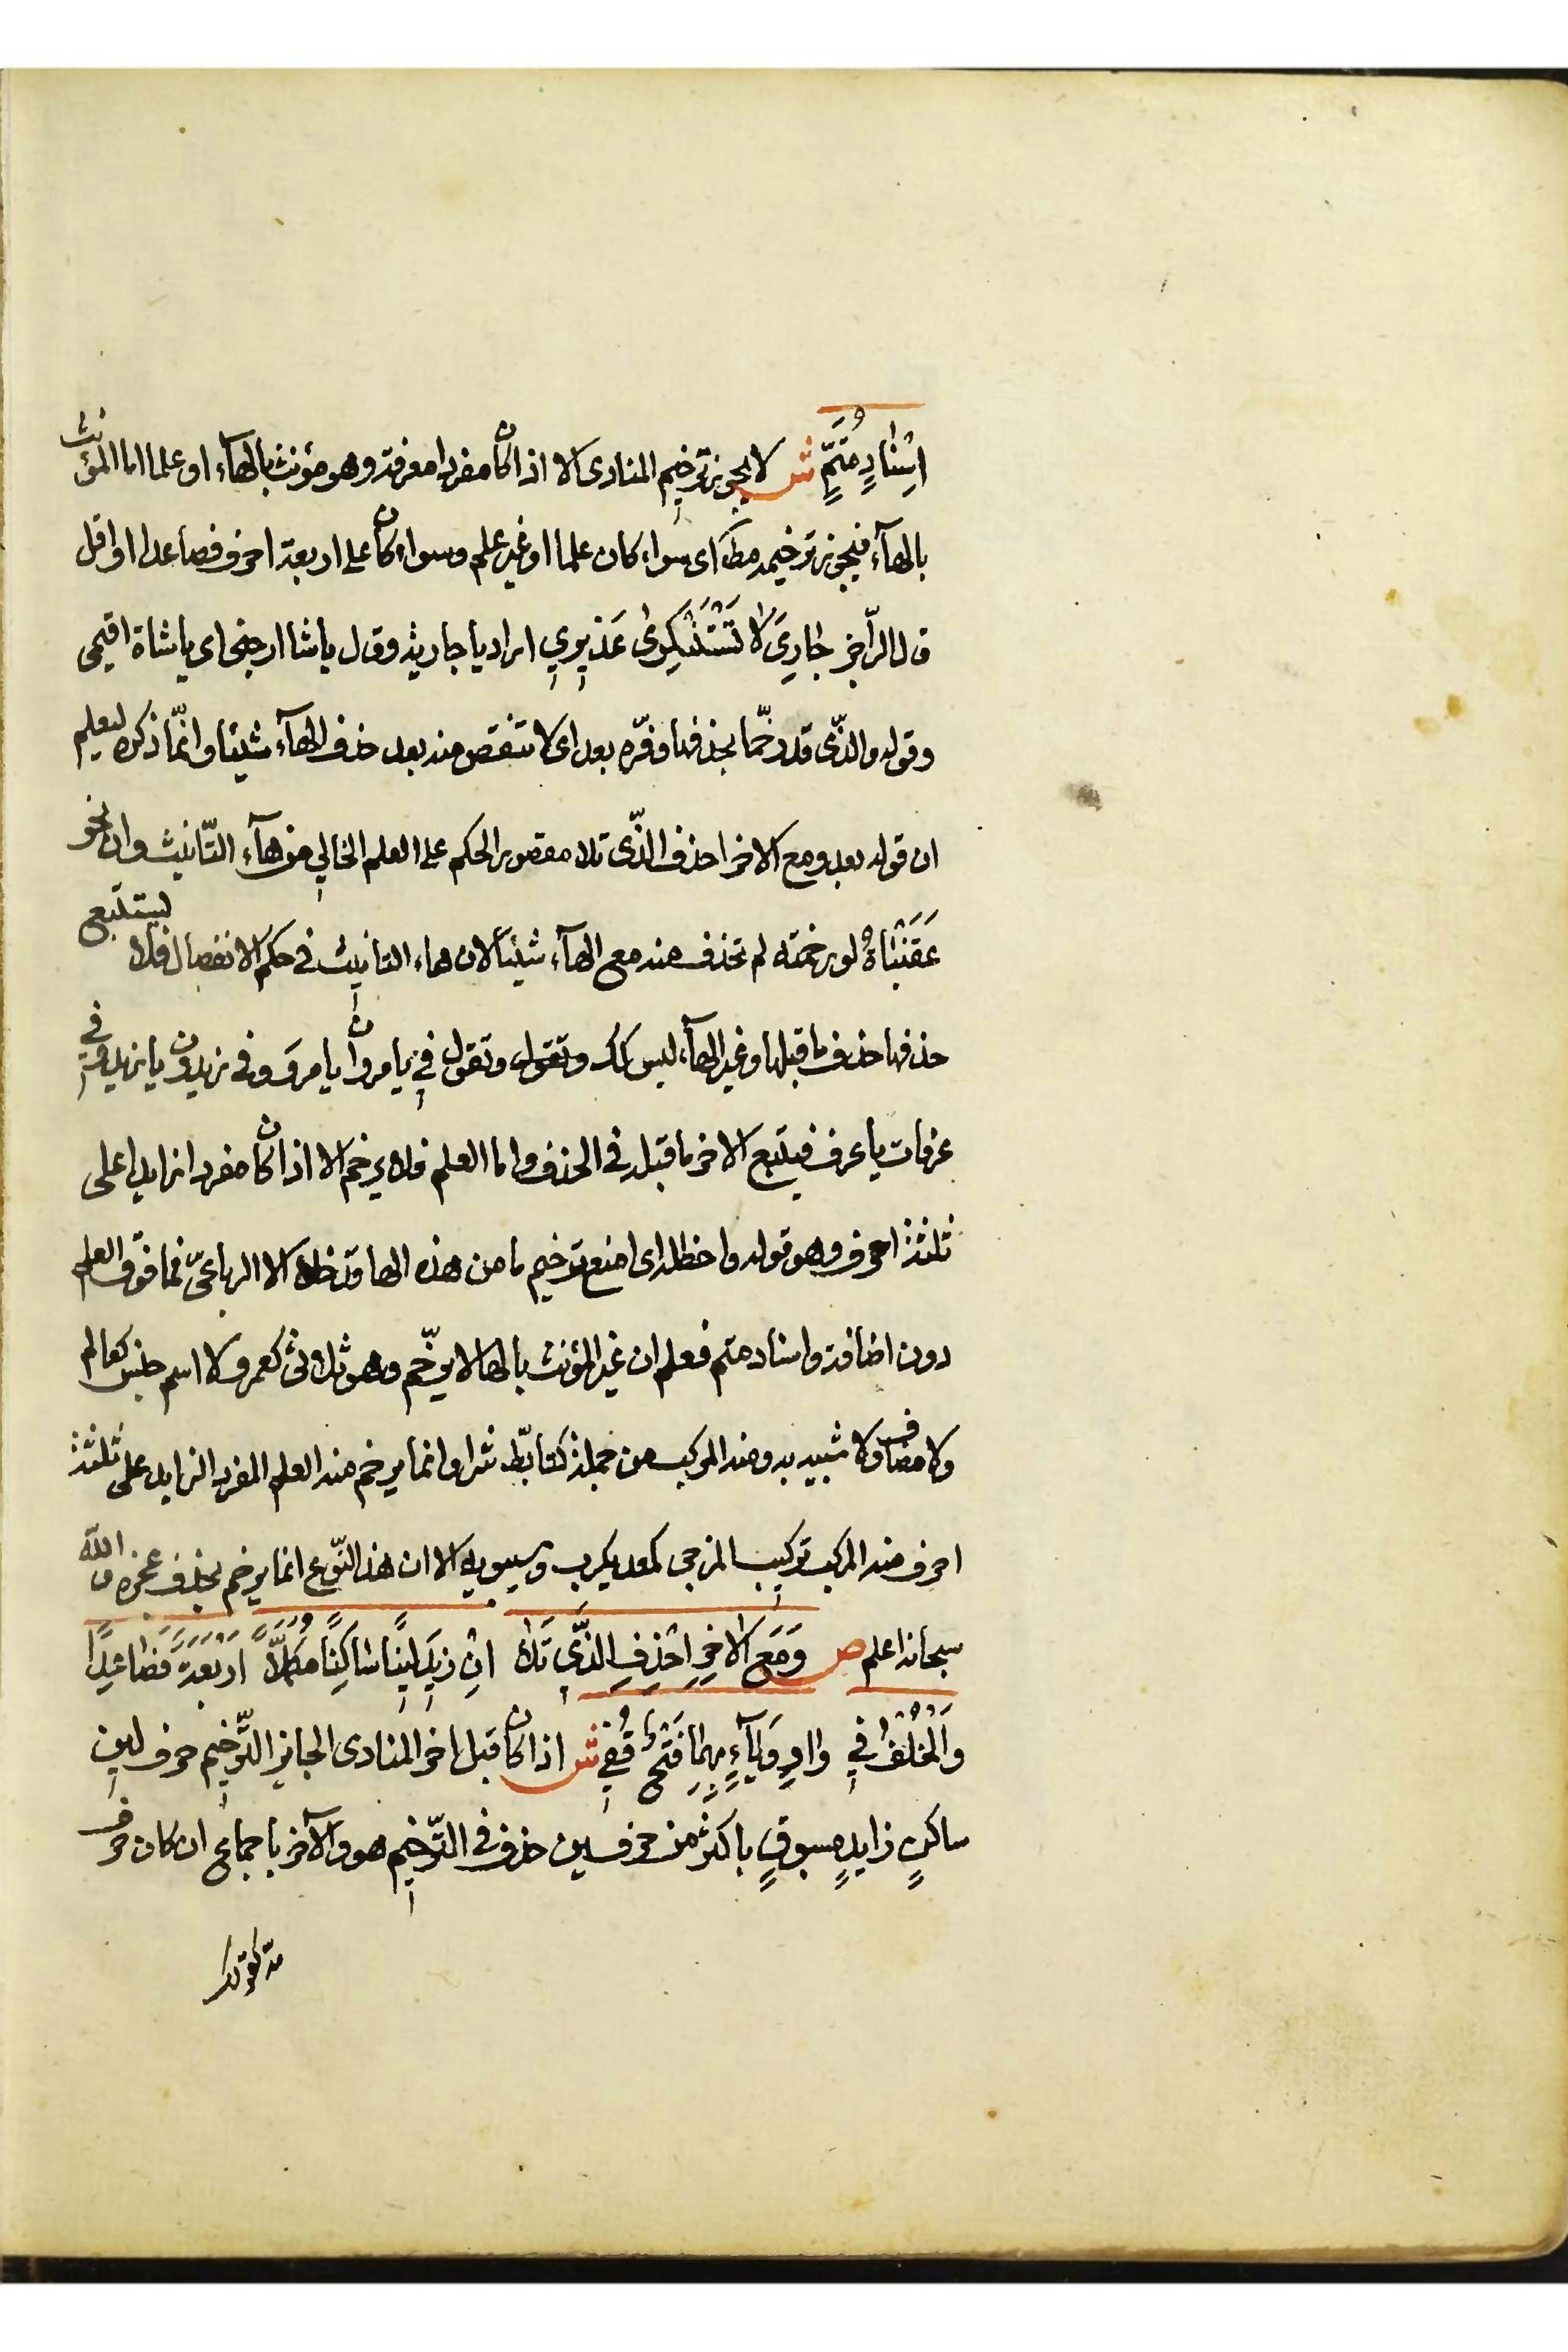 اسْنادٍ مُتَمٍّ ش لا يجوز ترخيم المنادى الا اذا كان مفردا معرفة وهو مؤنث بالهآء او علما اما المؤنث
بالهآء فيجوز ترخيمه مطـَ اى سواء كان علما او غير علم وسواء كان على اربعة احرف فصاعدا او اقل
قال الرّاجز جاري لا تَسْتَنْكِرى عَذيري اراد يا جارية وقال يا شا ارجنى اى يا شاة اقيمى
وقوله والذّى قد رخّما بحذفها وفّره بعد اى لا تنقص منه بعد حذف الهآء شيئا وانّما ذكره ليعلم
ان قوله بعد ومع الاخر احذف الذّى تلا مقصور الحكم على العلم الخالي من هآء التّانيث وان نحو
عَقَنْباةُ لو رخمته لم تحذف منه مع الهآء شيئا لان هاء التانيث فى حكم الانفصال فلا يستتبع
حذفها حذف ما قبلها وغير الهآء ليس كك وتقول وتقول في يا مروان يا مروَ وفى زيدون يا زيد وفي
عرفات يا عرف فيتبع الاخر ما قبله فى الحذف واما العلم فلا يرخم الا اذا كان مفردا زايدا على
ثلثة احرف وهو قوله واحظلا اى امنع ترخيم ما من هذه الها قد خلا الا الرباعىّ فما فوق العلم
دون اضافة واسناد متم فعلم ان غير المؤنث بالها لا يرخّم وهو ثلاثى كعمر ولا اسم جنس كعالم
ولا مضاف ولا شبيه به ومنه المركب من جملة كتابّط شرا وانما يرخم منه العلم المفرد الزايد على ثلثة
احرف منه المركب تركيب المزجى كمعديكرب وسيبويه الا ان هذا النّوع انما يرخم بحذف عجزه والله
سبحانه اعلم ص وَمَع الاخِرِ احْذِفِ الذّى تَلا انْ زيدَ لينًا ساكِنًا مُكَمِّلاً اربعةً فَصاعِدًا
وَالْخُلْفُ في واوٍ وَيآءٍ بِهِما فَتْحٌ قُفي ش اذا كان قبل اخر المنادى الجايز التّرخيم حرف لين
ساكنٍ زايدٍ مسبوقٍ باكثر من حرفين حذف فى التّرخيم هو والآخر باجماع ان كان حرف